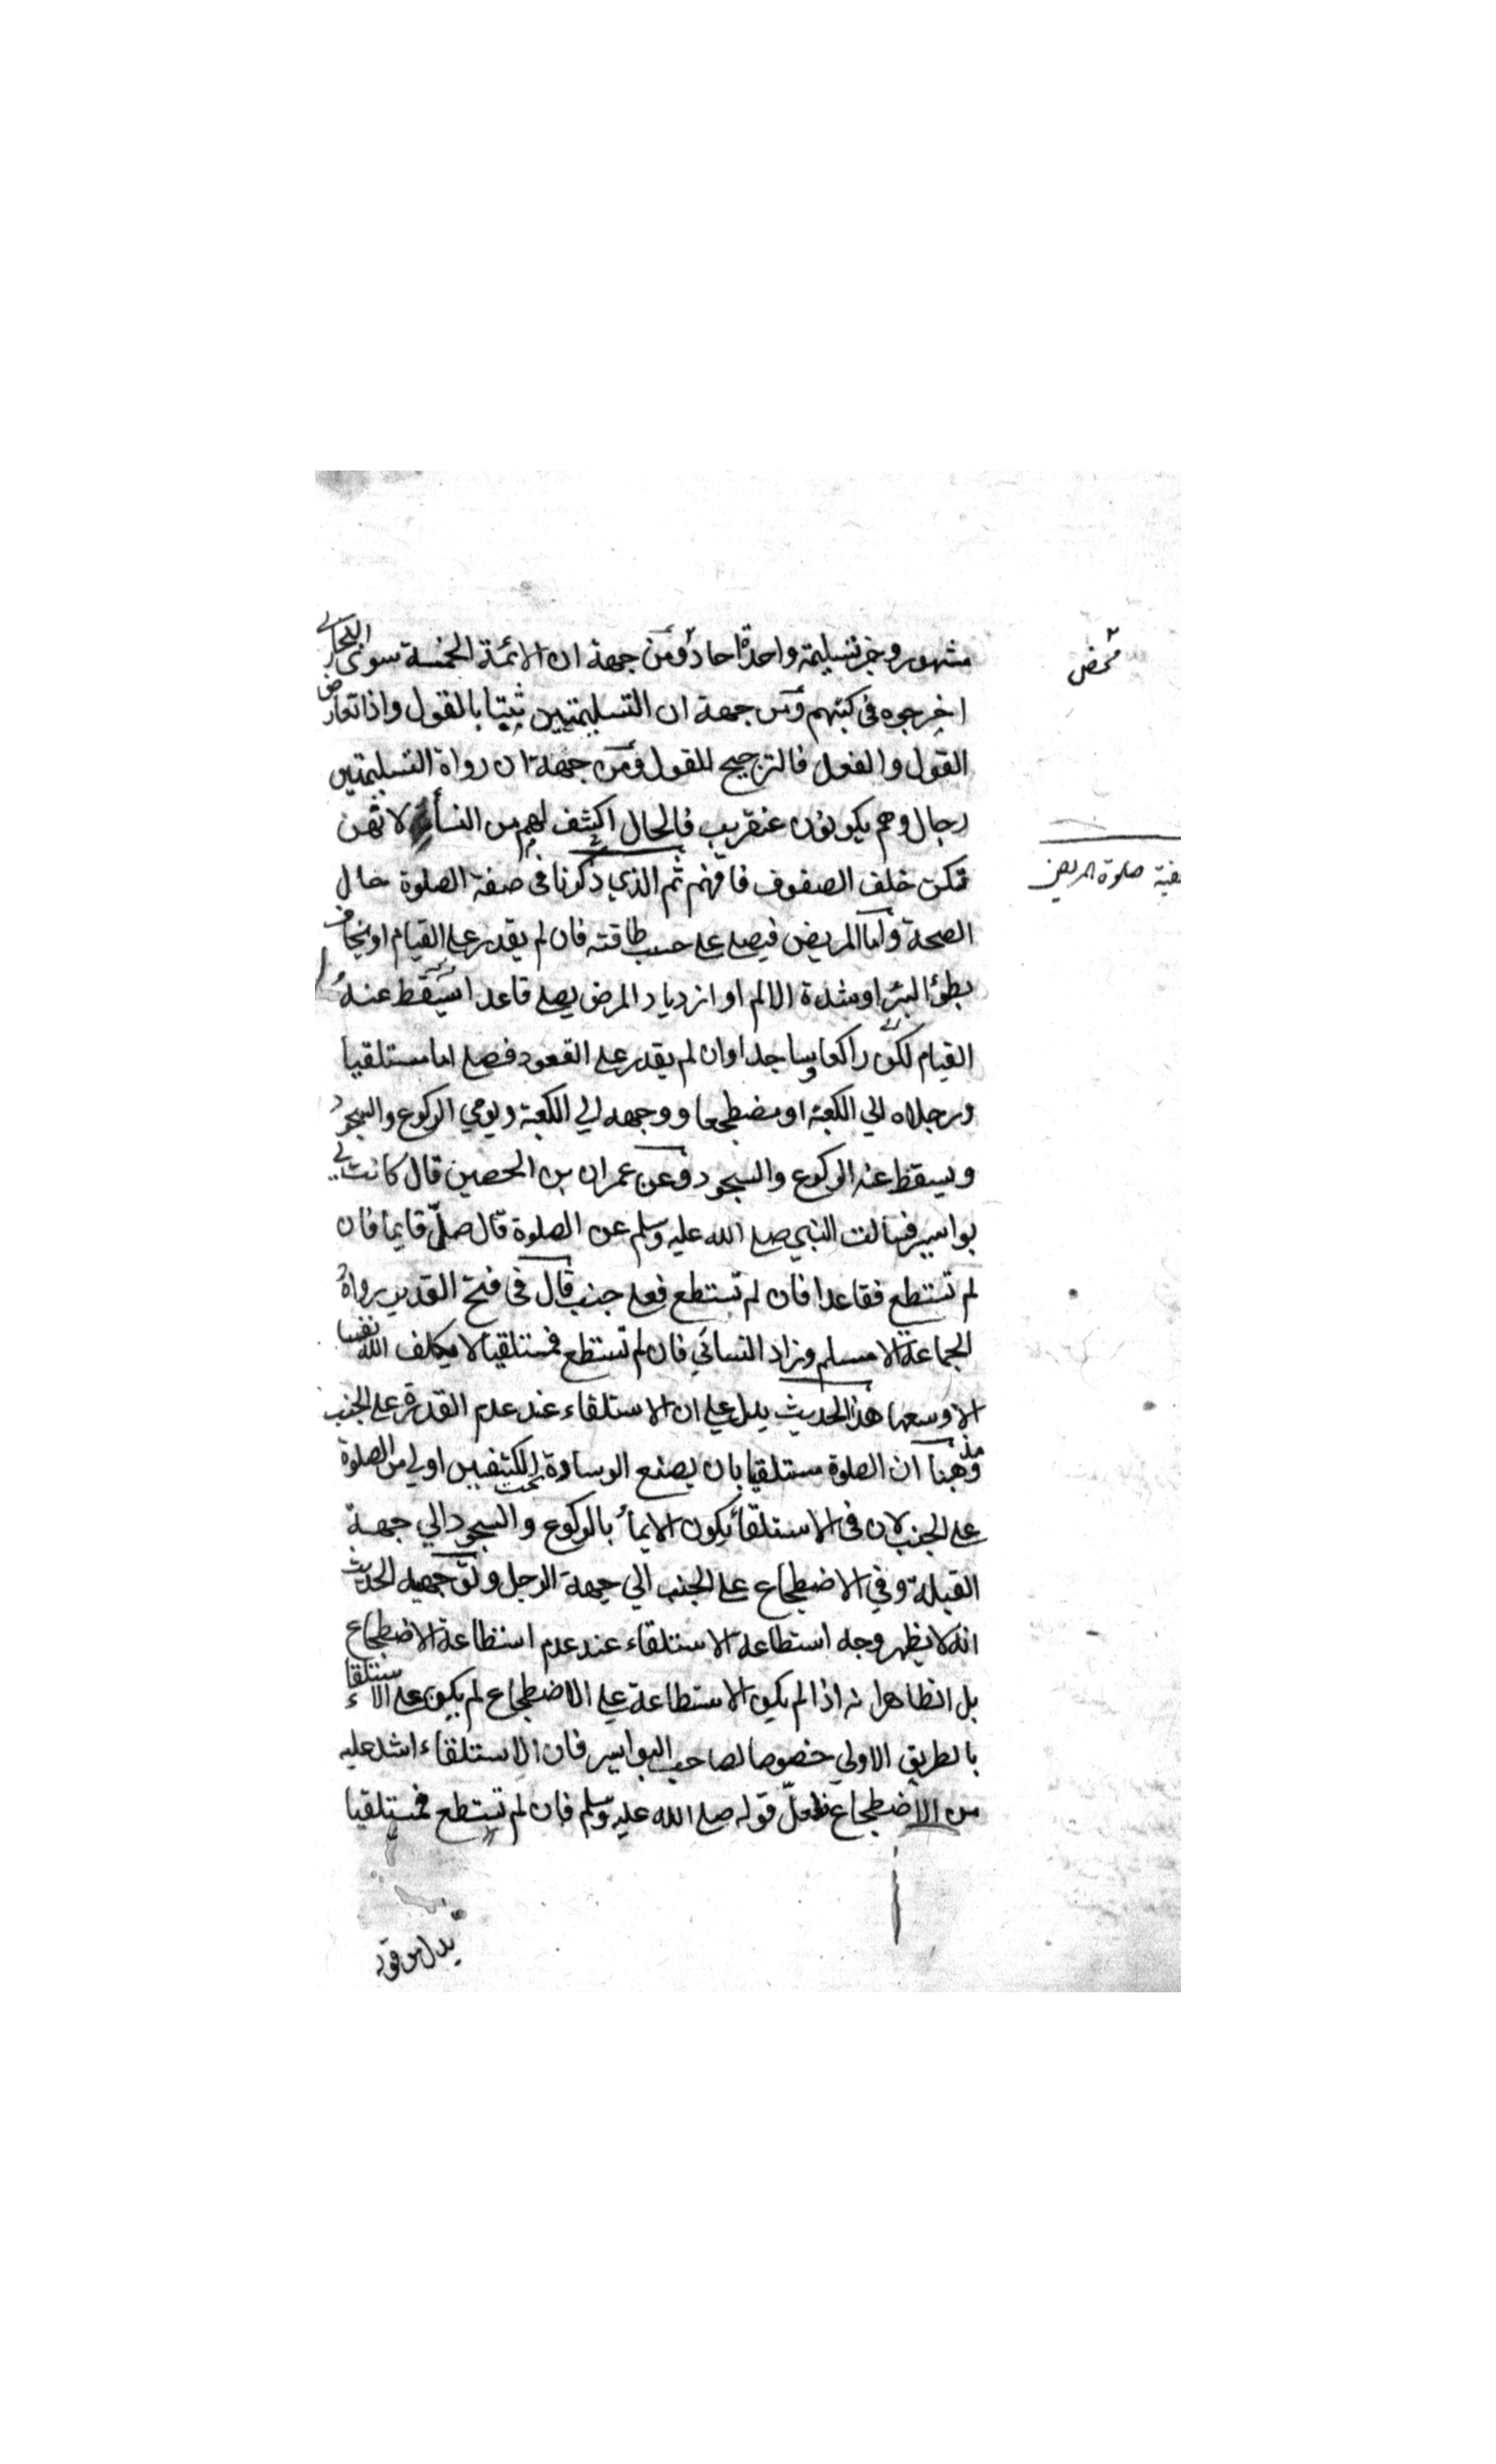 مشهور وخبر تسليمة واحدة احاد ومن جهة ان الائمة الخمسة سوى البخاري
اخرجوه في كتبهم ومن جهة ان التسليمتين ثبتا بالقول واذا تعارض
القول والفعل فالترجيح للقول ومن جهة ان رواة التسليمتين
رجال وهم يكونون عنقريب فالحال اكشف لهم من النسأ لانهن
تكن خلف الصفوف فافهم ثم الذي ذكرنا في صفة الصلوة حال
الصحة واما المريض فيصلي على حسب طاقته فان لم يقدر على القيام او يخاف
بطؤ البرٔ او شدة الالم او ازدياد المرض يصلي قاعدا يسقط عنه
القيام لكن راكعا وساجدا وان لم يقدر على القعود فصلى اما مستلقيا
ورجلاه الي الكعبة او مضطجعا ووجهه الي الكعبة ويومي الركوع والسجود
ويسقط عنه الركوع والسجود وعن عمران بن الحصين قال كانت لي
بواسير فسألت النبي صلى الله عليه وسلم عن الصلوة قال صلّ قايما فان
لم تستطع فقاعدا فان لم تستطع فعلى جنب قال في فتح القدير رواه
الجماعة الا مسلم وزاد النسائي فان لم تستطع فمستلقيا لا يكلف الله نفسا
الا وسعها هذا الحديث يدل على ان الاستلقاء عند عدم القدرة على الجنب
ومذهبنا ان الصلوة مستلقيا بان يصنع الوسادة تحت الكتفين اولي من الصلوة
على الجنب لان في الاستلقأ يكون الايمأ بالركوع والسجود الي جهة
القبلة وفي الاضطجاع على الجنب الي جهة الرجل وتوجيه الحديث
انه لا يظهر وجه استطاعة الاستلقاء عند عدم استطاعة الاضطجاع
بل الظاهر انه اذا لم يكن الاستطاعة على الاضطجاع لم يكن على الاستلقاء
بالطريق الاولي خصوصا لصاحب البواسير فان الاستلقاء اشد عليه
من الاضطجاع فلعلّ قوله صلى الله عليه وسلم فان لم تستطع فمستلقيا
يدل من قوله
محض
صلوة المريض